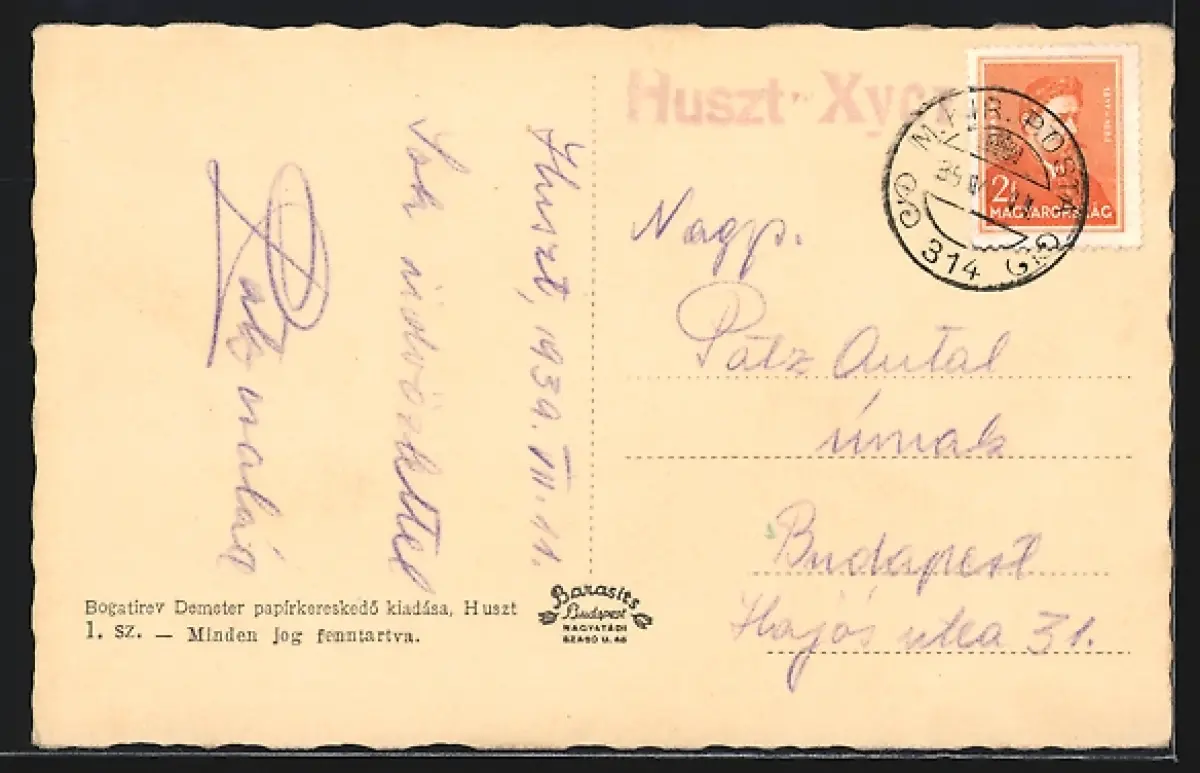 Huszt, 1939. VII. 11.
Sok üdvözlettel
család
Huszt
M. KIR. POSTA
314
MAGYARORSZÁG
Nagys.
Pátz Antal
úrnak
Budapest
Hajós utca 31.
Bogatirev Demeter papírkereskedő kiadása, Huszt
1. sz. — Minden jog fenntartva.
Barasits
Budapest
NAGYATÁDI
SZABÓ U. 46